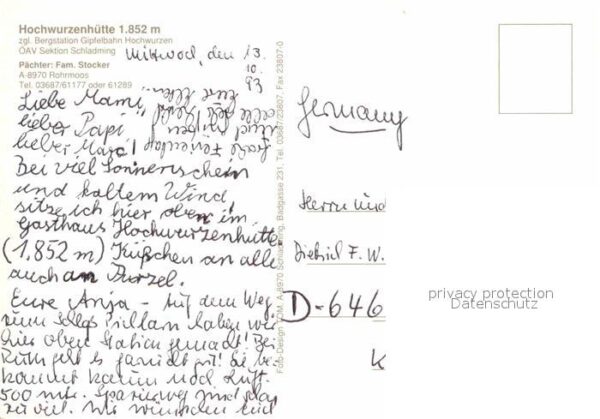 Hochwurzenhütte 1.852 m
zgl. Bergstation Gipfelbahn Hochwurzen
ÖAV Sektion Schladming
Pächter: Fam. Stocker
A-8970 Rohrmoos
Tel. 03687/61177 oder 61289
Mittwoch, den 13.
10.
93
Liebe Mami,
lieber Papi
lieber Marc!
Bei viel Sonnenschein
und kaltem Wind
sitze ich hier oben im
Gasthaus Hochwurzenhütte
(1.852 m) Küßchen an alle
auch an Purzel.
Eure Anja - Auf dem Weg
zum haben wir
hier oben Station gemacht! Bei
Ruth geht es garnicht gut! Sie be-
kommt kaum noch Luft.
500 mtr. Spazierweg sind
zu viel. Wir wünschen Euch
Eure Eltern
Foto-Design A-8970 Schladming, Badgasse 231, Tel. 03687/23807, Fax 23807-0
Germany
Herrn und
Dietrich F. W.
D-646
privacy protection
Datenschutz